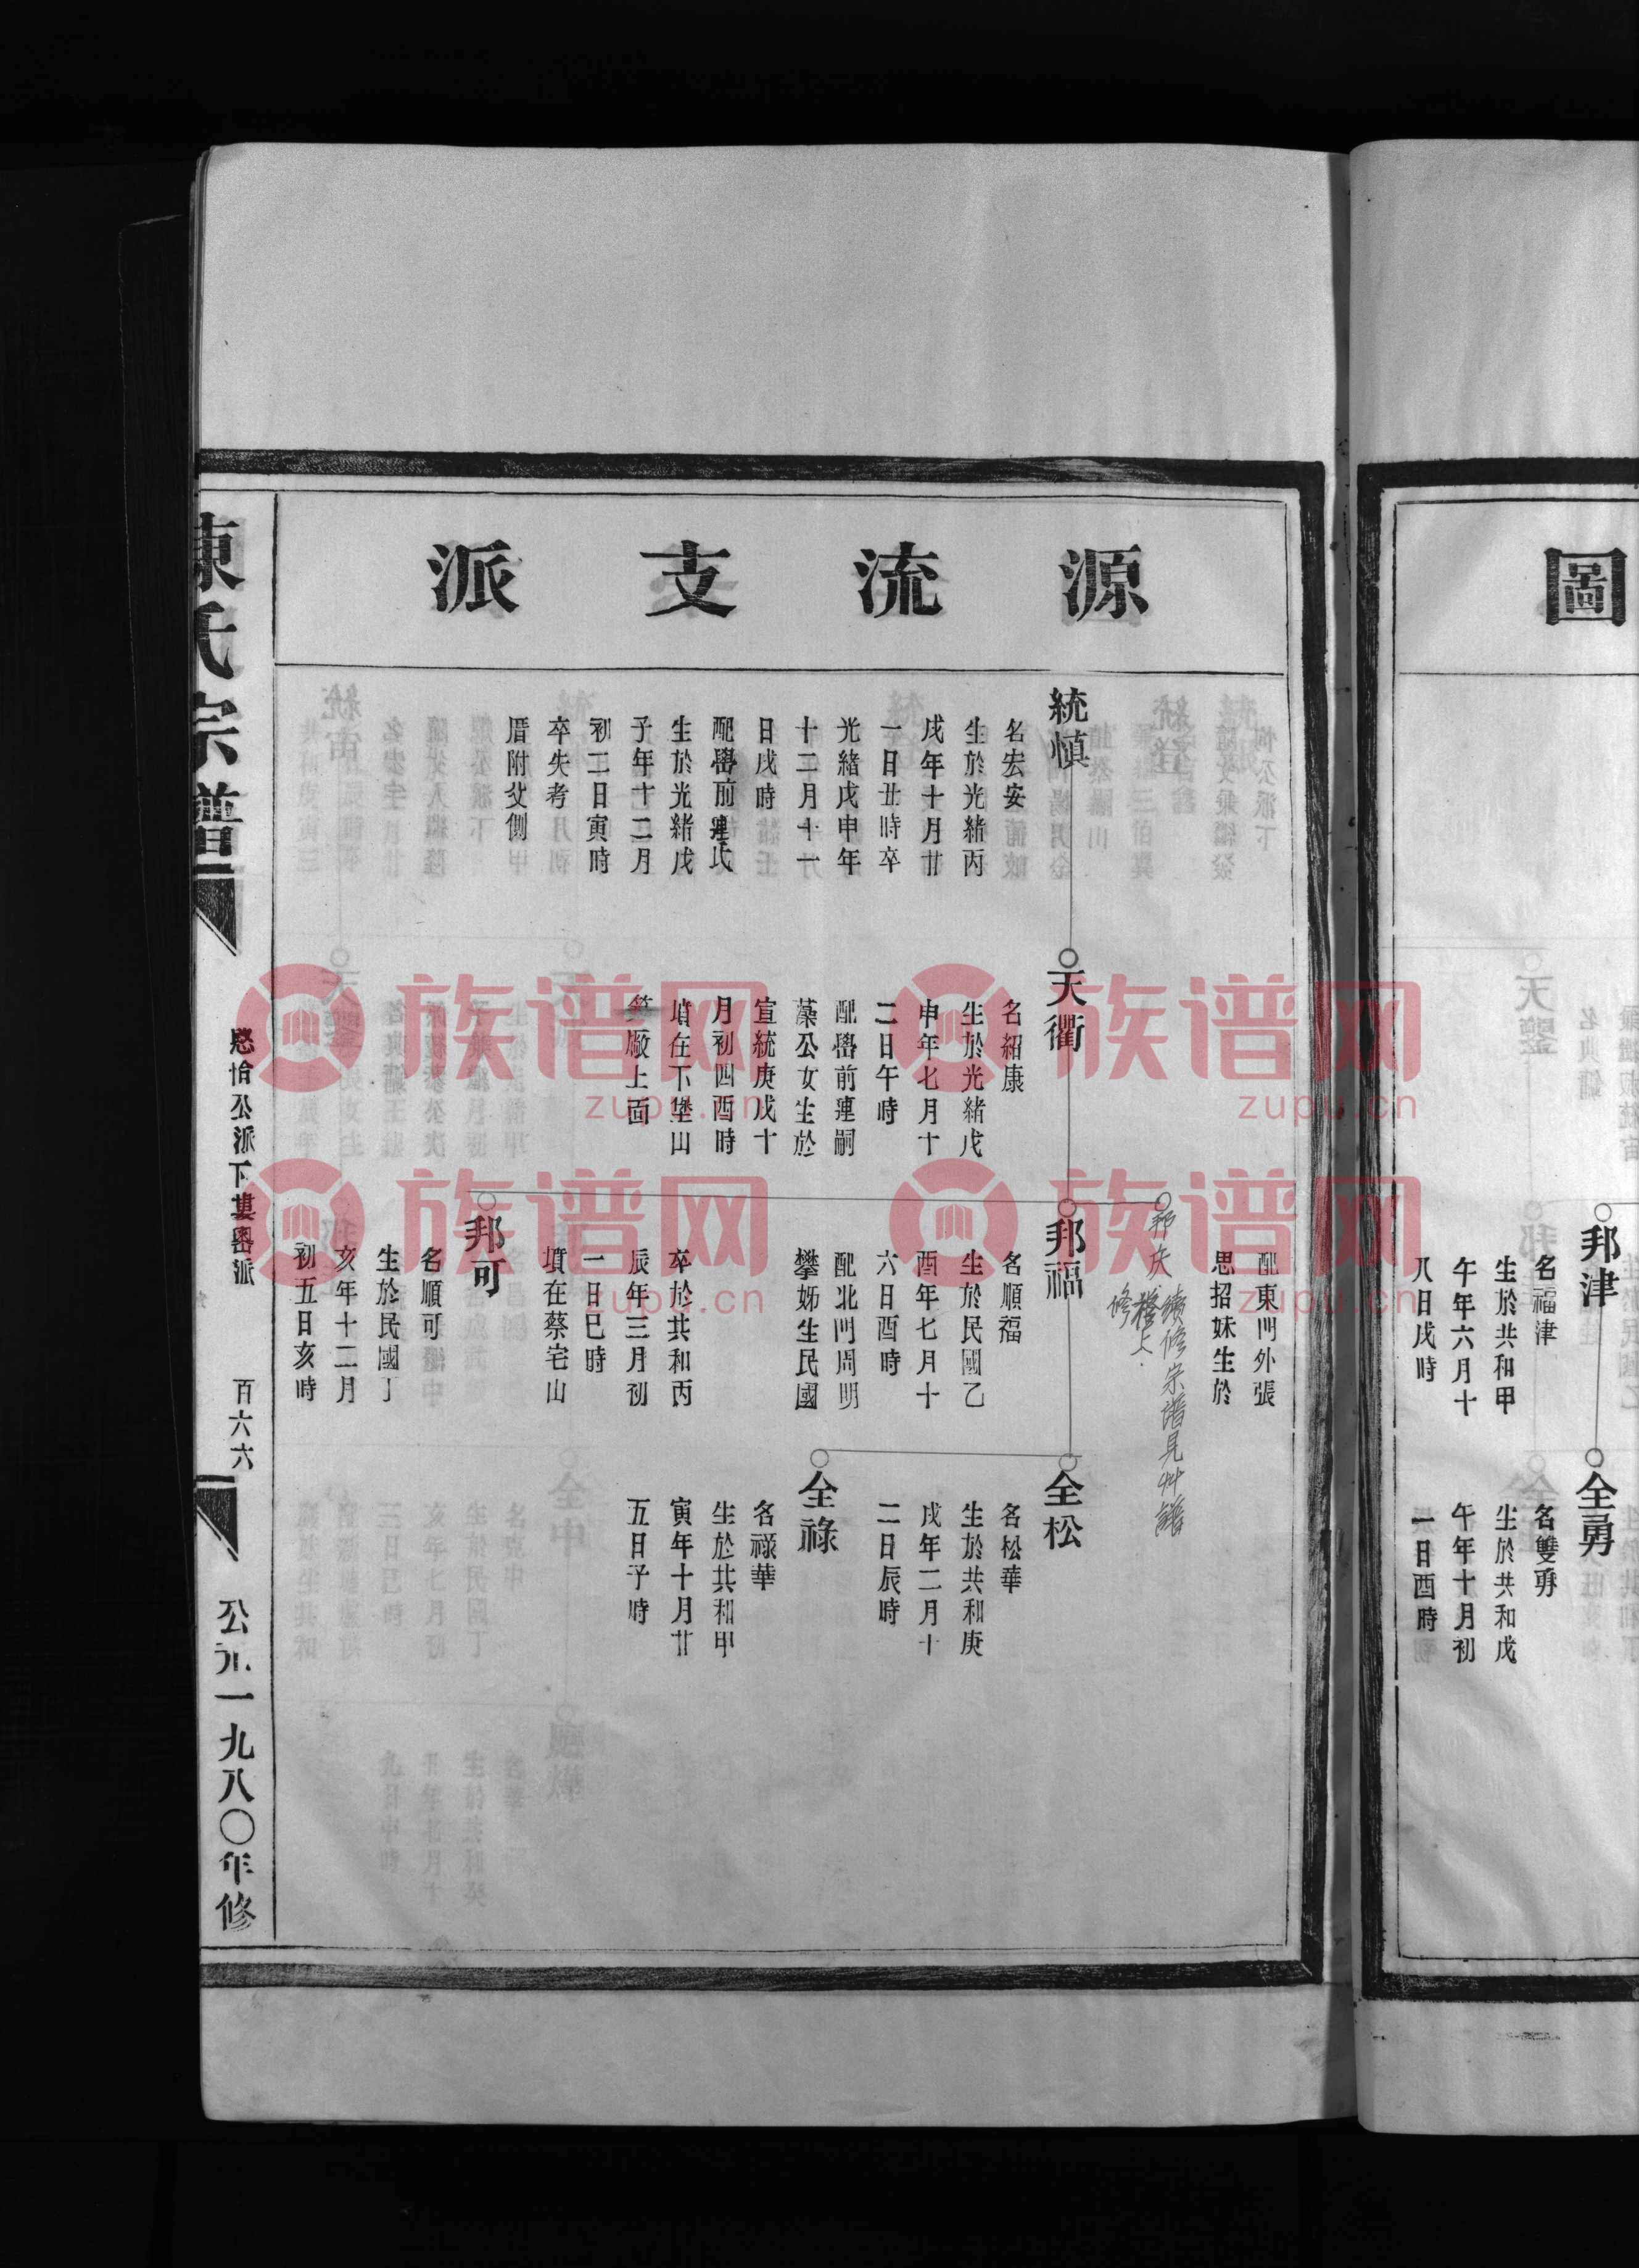 圖
邦津
名福津
生於共和甲
午年六月十
八日戌時
全勇
名雙勇
生於共和戊
午年十月初
一日酉時
源流支派
統慎
名宏安
生於光緒丙
戌年十月廿
一日丑時卒
光緒戊申年
十二月十一
日戌時
配嶴前連氏
生於光緒戊
子年十二月
初二日寅時
卒失考
厝附父側
天衢
名紹康
生於光緒戊
申年七月十
二日午時
配嶴前連嗣
藻公女生於
宣統庚戌十
月初四酉時
墳在下堡山
廠上面
配東門外張
思招妹生於
續修宗譜見艸譜
邦福
名順福
生於民國乙
酉年七月十
六日酉時
配北門周明
攀姊生民國
卒於共和丙
辰年三月初
一日巳時
墳在蔡宅山
邦可
名順可
生於民國丁
亥年十二月
初五日亥時
全松
名松華
生於共和庚
戌年二月十
二日辰時
全祿
名祿華
生於共和甲
寅年十月廿
五日子時
陳氏宗譜
公派下
百六六
公元一九八〇年修
族谱网
zupu.cn
族谱网
zupu.cn
族谱网
zupu.cn
族谱网
zupu.cn